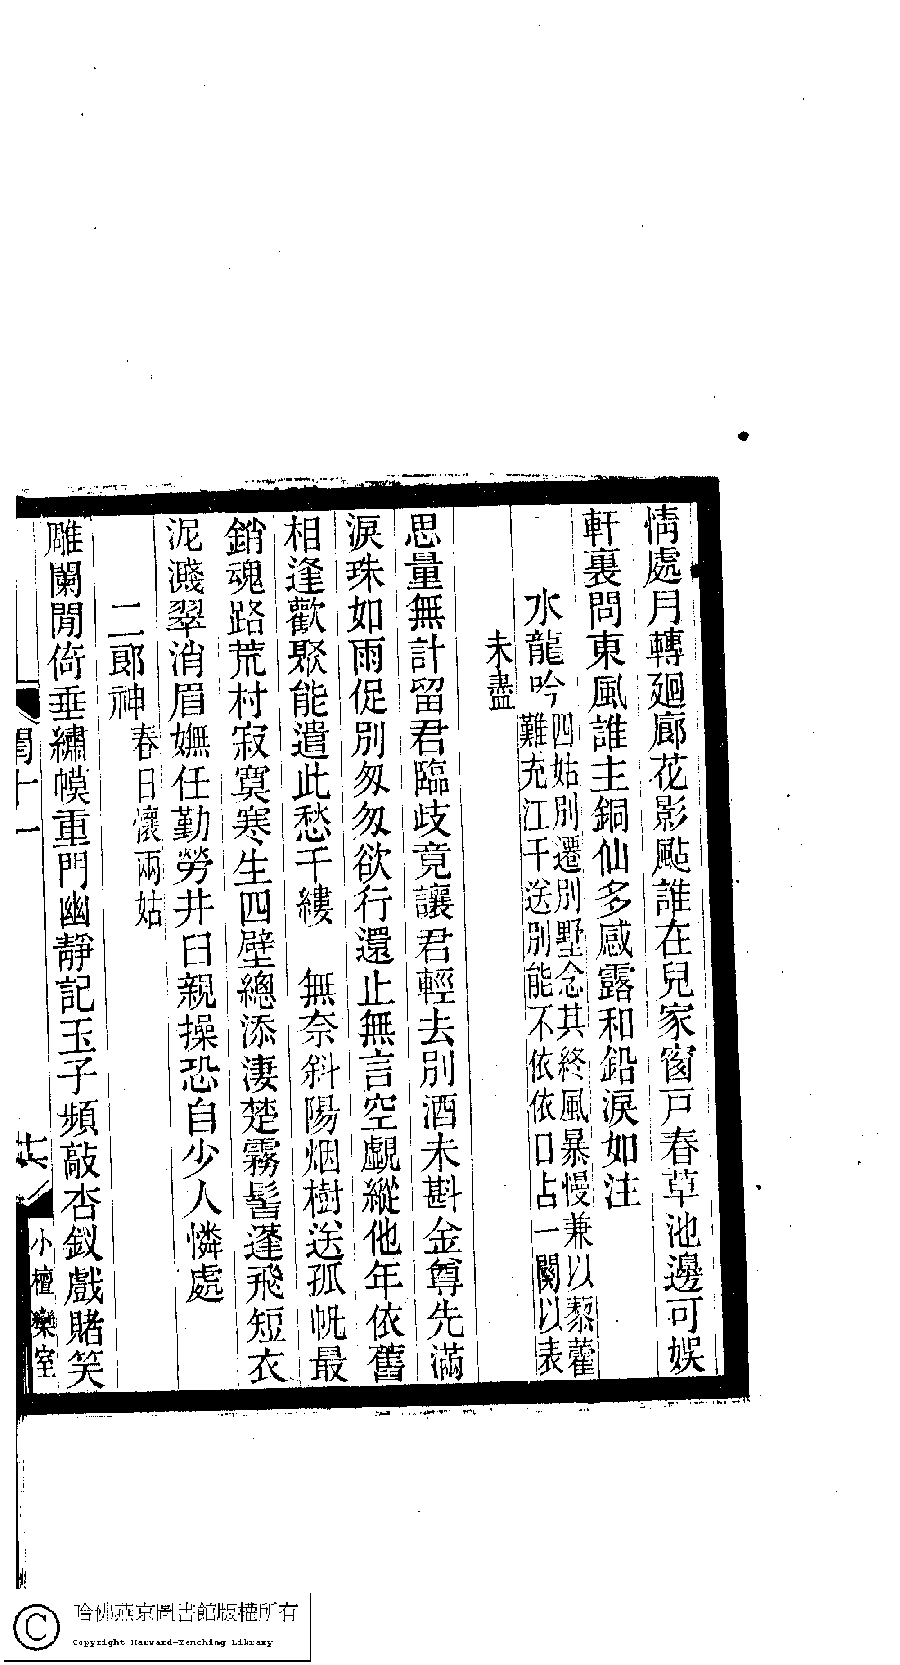 情處月轉廻廊花影颭誰在兒家窗戸春草池邊可娛
軒裏問東風誰主銅仙多感露和鉛淚如注
水龍吟 四姑別遷別墅念其終風暴慢兼以藜藿
難充江干送別能不依依口占一闋以表
未盡
思量無計留君臨歧竟讓君輕去別酒未斟金尊先滿
淚珠如雨促別匆匆欲行還止無言空覷縱他年依舊
相逢歡聚能遣此愁千縷　無奈斜陽烟樹送孤帆最
銷魂路荒村寂寞寒生四壁總添淒楚霧髻蓬飛短衣
泥濺翠消眉嫵任勤勞井臼親操恐自少人憐處
二郎神 春日懷兩姑
雕闌閒倚垂繡幙重門幽靜記玉子頻敲杏釵戲賭笑
閨十一
小檀欒室
哈佛燕京圖書館版權所有
Copyright Harvard-Yenching Library